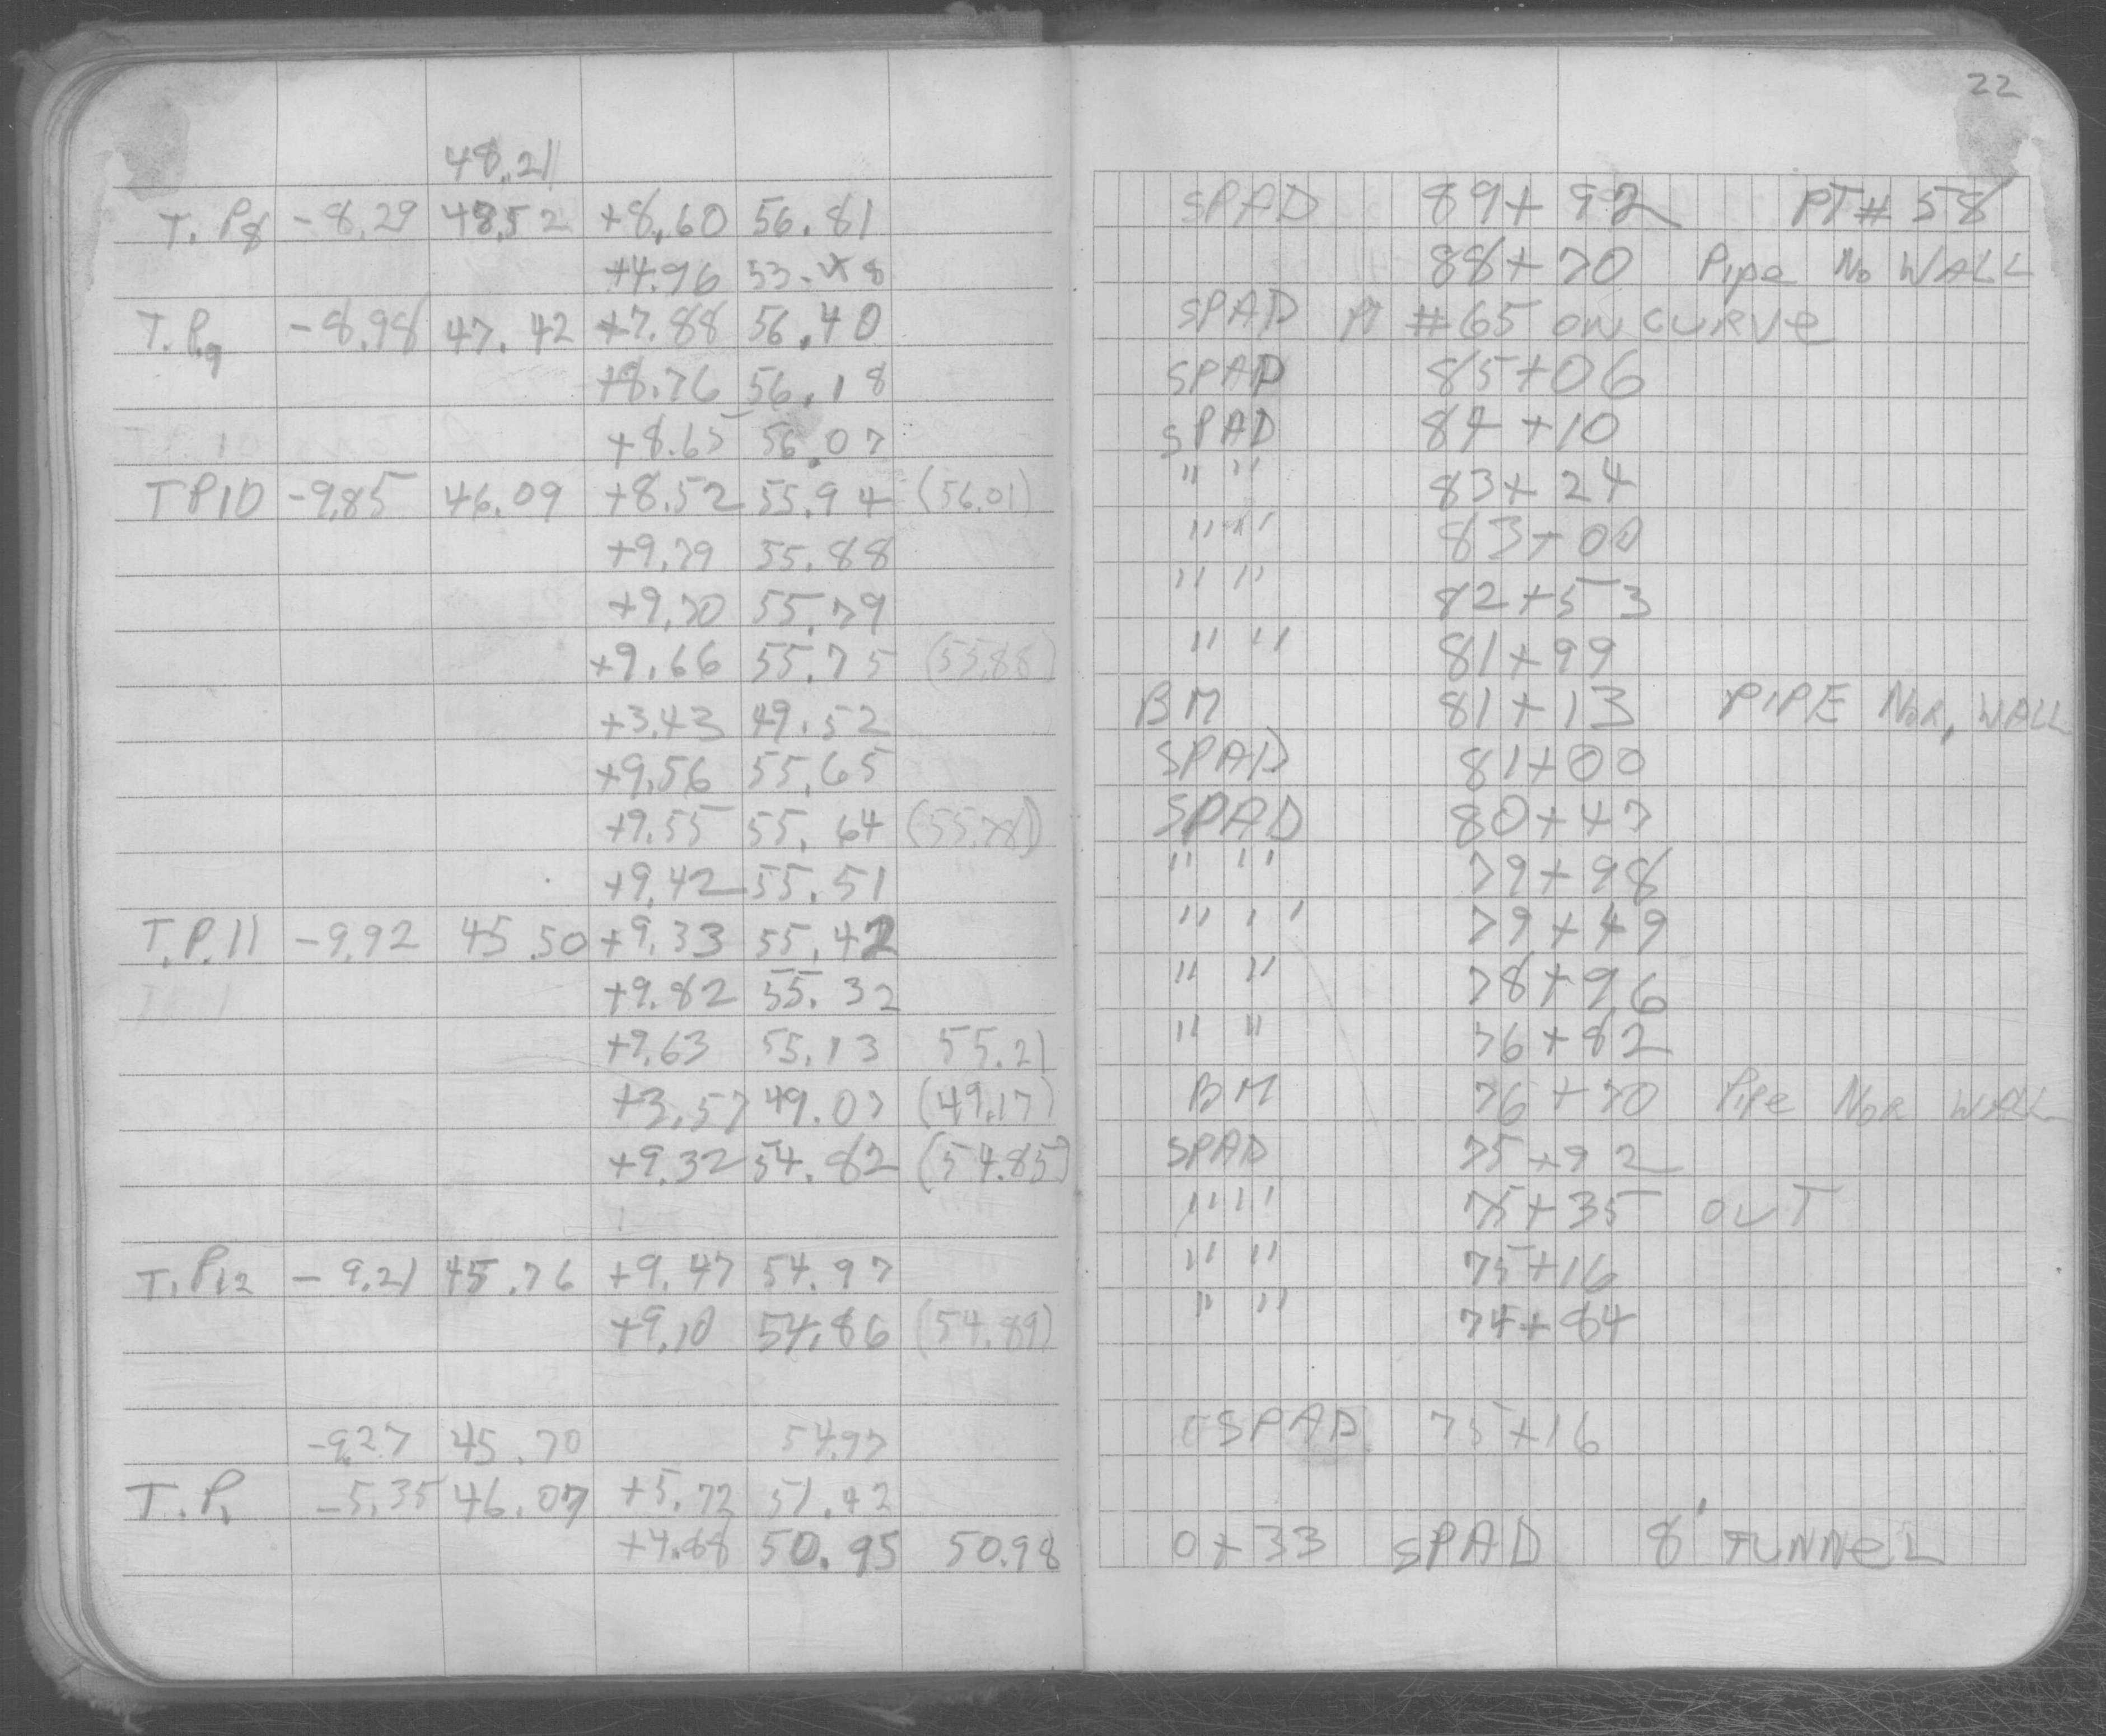 22
48.21
T.P8 -8.29 48.52 +8.60 56.81 SPAD 89+92 PT# 58
+4.96 53.48 88+70 Pipe No WALL
T.P.9 -8.98 47.42 +7.88 56.40 SPAD PT #65 ON CURVE
+8.76 56.18 SPAD 85+06
+8.65 56.07 SPAD 84+10
TP10 -9.85 46.09 +8.52 55.94 (56.01) " " 83+24
+9.79 55.88 " " 83+00
+9.70 55.79 " " 82+53
+9.66 55.75 (55.88) " " 81+99
+3.43 49.52 BM 81+13 PIPE NOR, WALL
+9.56 55.65 SPAD 81+00
+9.55 55.64 (55.78) SPAD 80+47
+9.42 55.51 " " 79+98
T.P.11 -9.92 45.50 +9.33 55.42 " " 79+49
+9.82 55.32 " " 78+96
+9.63 55.13 55.21 " " 76+82
+3.57 49.07 (49.17) BM 76+70 Pipe NOR WALL
+9.32 54.82 (54.85) SPAD 75+92
" " 75+35 OUT
T.P12 -9.21 45.76 +9.47 54.97 " " 75+16
+9.10 54.86 (54.89) " " 74+84
-9.27 45.70 54.97 SPAD 75+16
T.P. -5.35 46.07 +5.72 51.42
+4.88 50.95 50.98 0+33 SPAD 8' TUNNEL